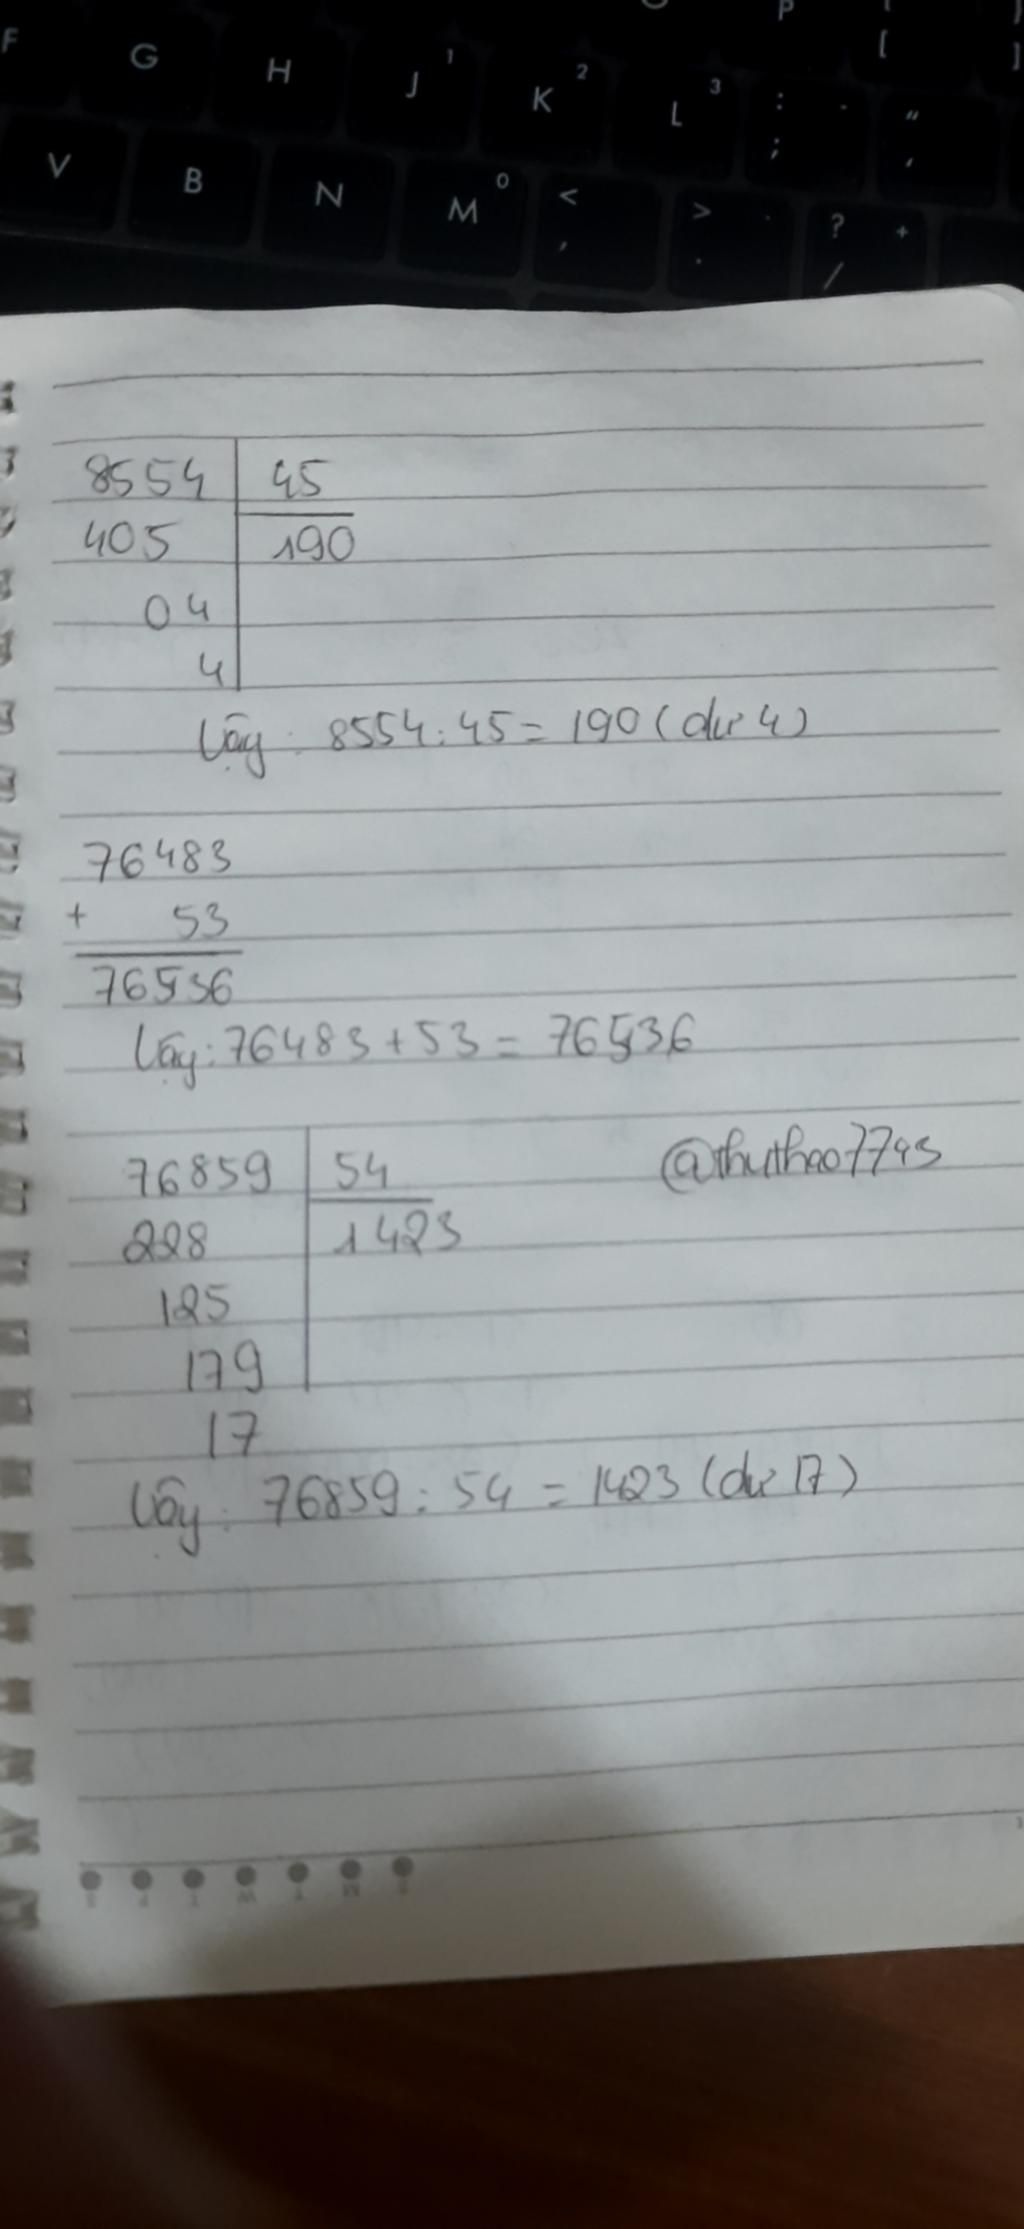 P [ ]
F G H J 1 K 2 L 3 : ; " '
V B N M 0 < , > . ? / +
8554 45
405 190
04
4
Vậy: 8554:45= 190 (dư 4)
76483
+ 53
76536
Vậy: 76483+53 = 76536
76859 54 @thuthao7793
228 1423
125
179
17
Vậy: 76859:54 = 1423 (dư 17)